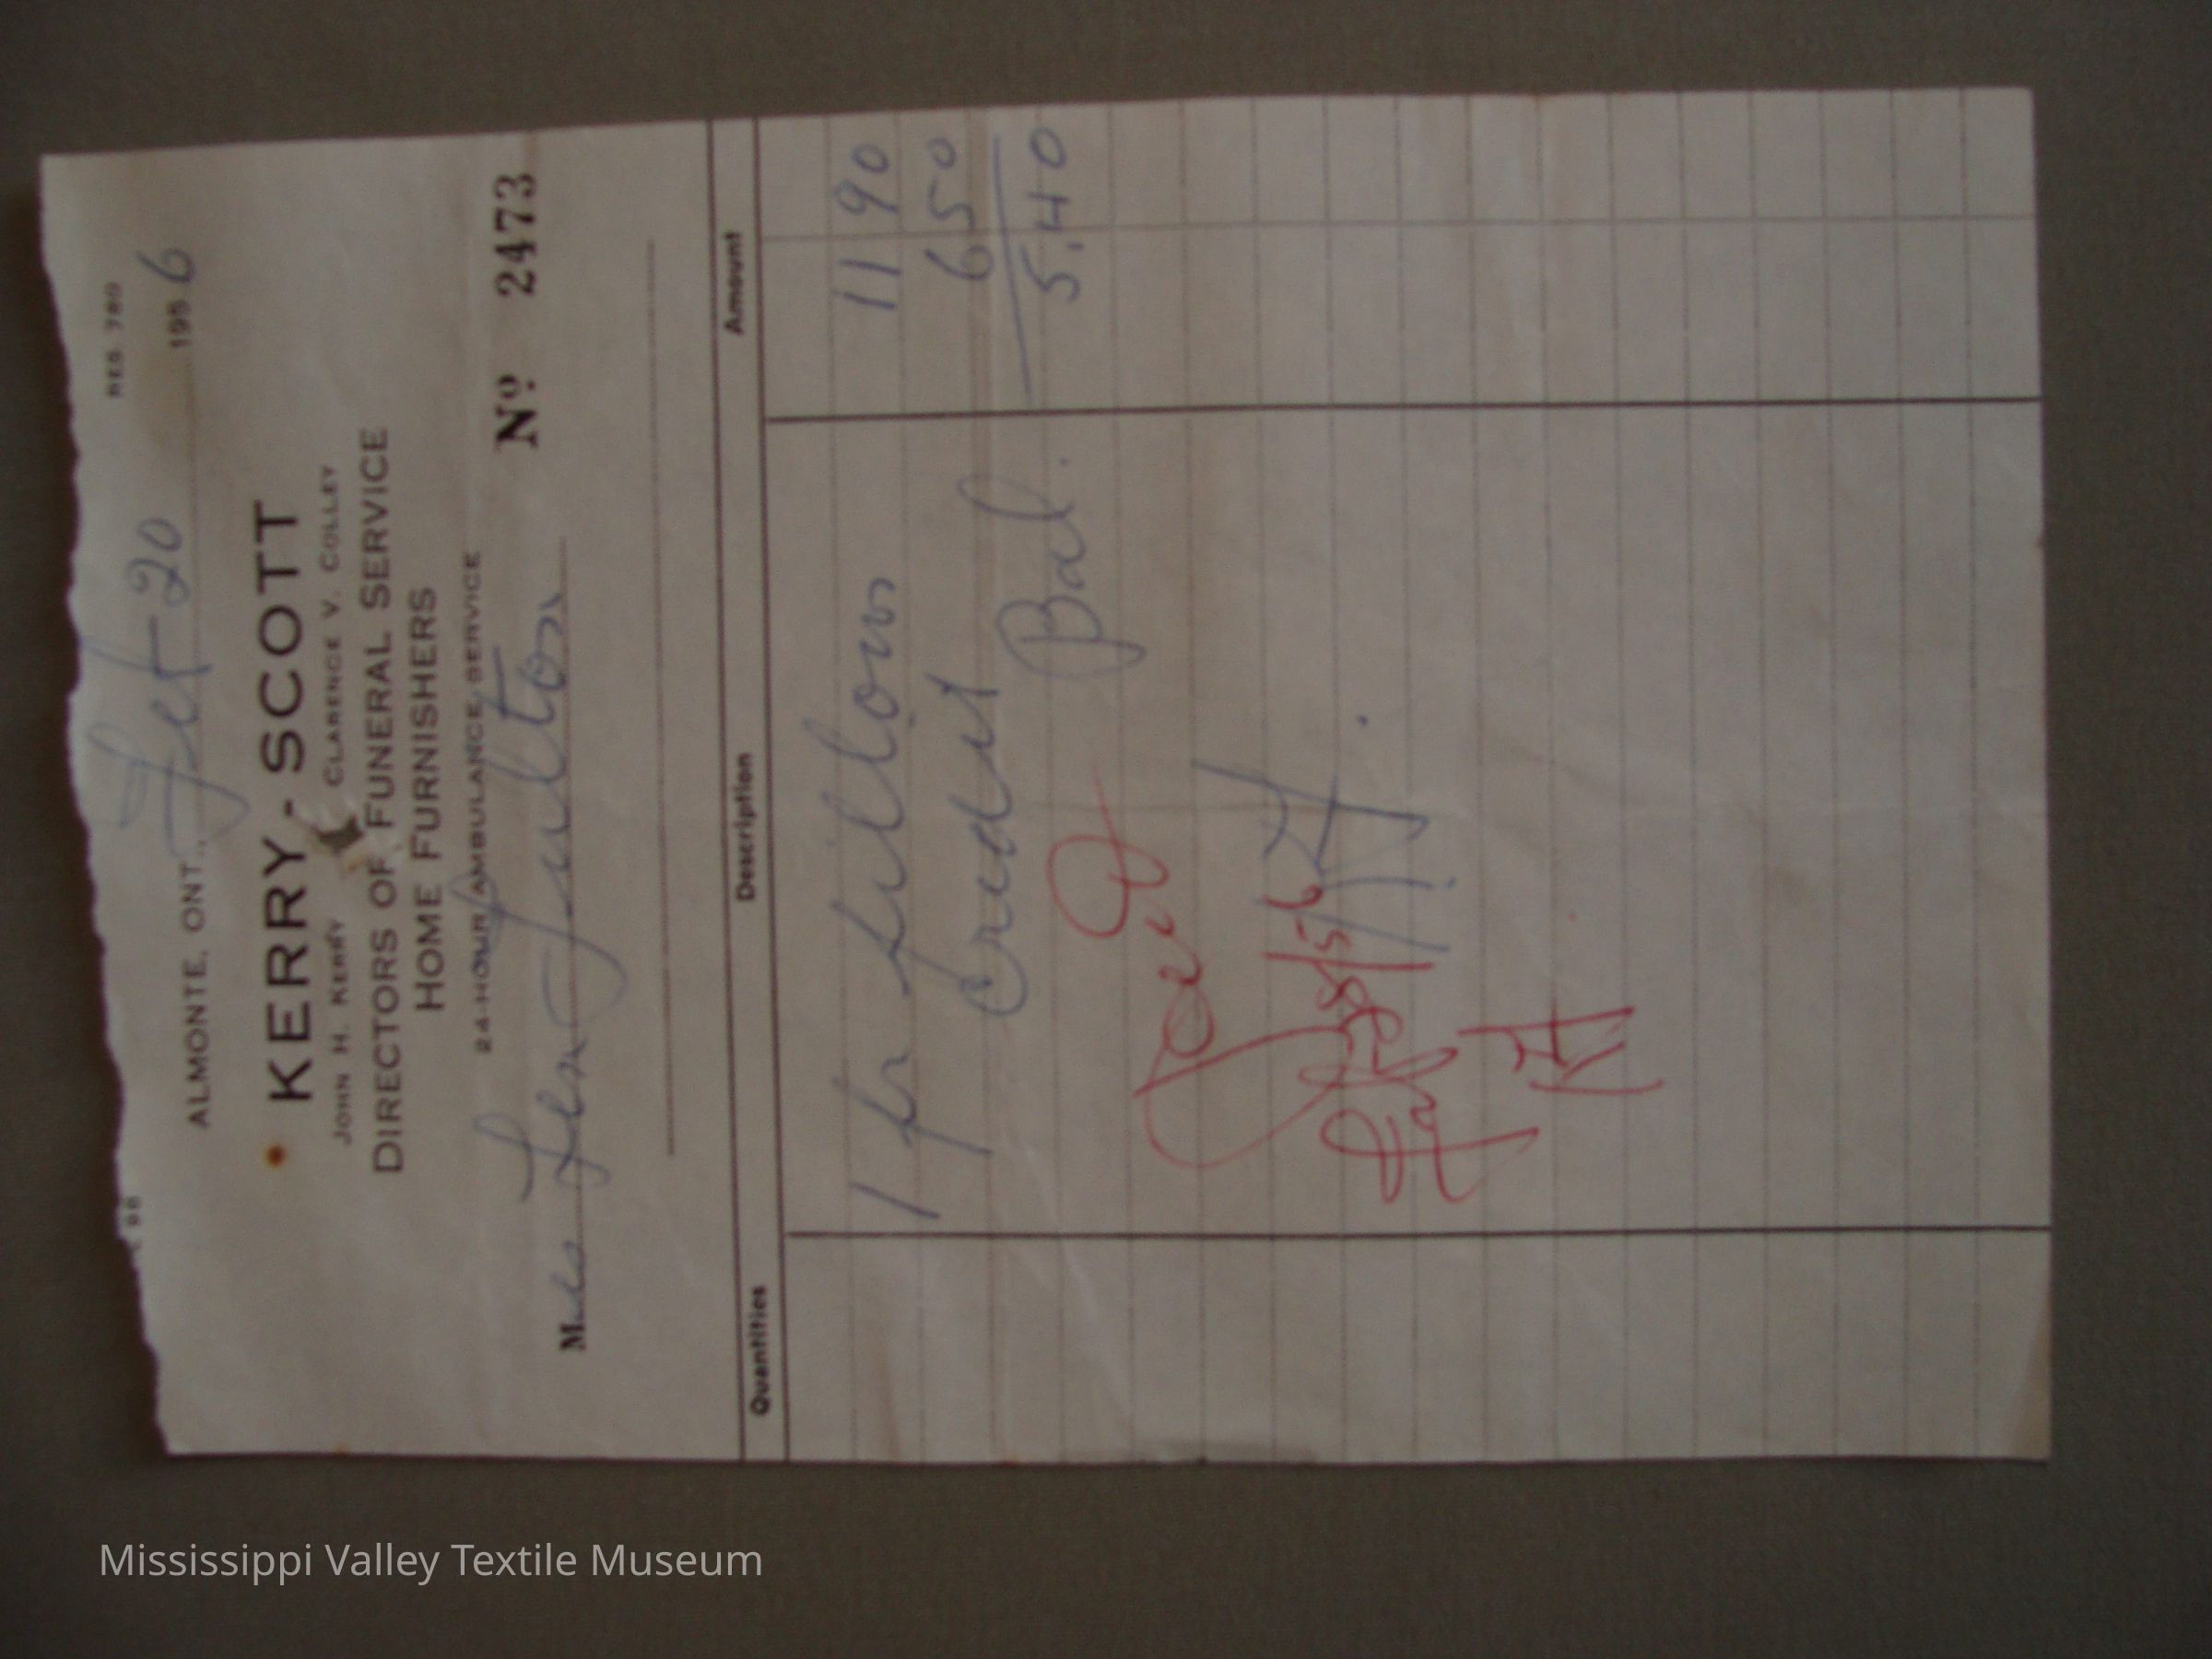 98 RES. 780
ALMONTE, ONT., Feb 20 1956
KERRY-SCOTT
JOHN H. KERRY CLARENCE V. COLLEY
DIRECTORS OF FUNERAL SERVICE
HOME FURNISHERS
24-HOUR AMBULANCE SERVICE
Nº 2473
Mrs Len Fulton
Quantities Description Amount
1 pr pillows 11 90
Credit 6 50
Bal. 5.40
Paid
Mississippi Valley Textile Museum